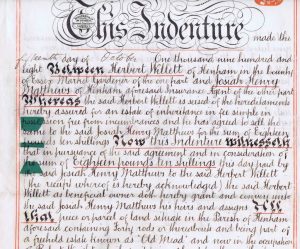 This Indenture made the
day of October One thousand nine hundred and
eight Between Herbert Willett of Henham in the County
of Essex Market Gardener of the one part and Josiah Henry
Matthews of Henham aforesaid Insurance Agent of the other part
Whereas the said Herbert Willett is seised of the hereditaments
hereby assured for an estate of inheritance in fee simple in
possession free from incumbrances and has agreed to sell the
same to the said Josiah Henry Matthews for the sum of Eighteen
pounds ten shillings Now this Indenture witnesseth
that in pursuance of the said agreement and in consideration of
the sum of Eighteen pounds ten shillings this day paid by
the said Josiah Henry Matthews to the said Herbert Willett
the receipt whereof is hereby acknowledged the said Herbert
Willett as beneficial owner doth hereby grant and convey unto
the said Josiah Henry Matthews his heirs and assigns All
that piece or parcel of land situate in the Parish of Henham
aforesaid containing forty rods or thereabouts and being part of
a freehold estate known as "Old Mead" and now in the occupation